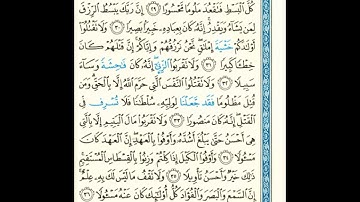 كُلَّ ٱلْبَسْطِ فَتَقْعُدَ مَلُومًا مَّحْسُورًا ٢٩ إِنَّ رَبَّكَ يَبْسُطُ ٱلرِّزْقَ
لِمَن يَشَآءُ وَيَقْدِرُ إِنَّهُۥ كَانَ بِعِبَادِهِۦ خَبِيرًۢا بَصِيرًا ٣٠ وَلَا تَقْتُلُوٓا۟
أَوْلَٰدَكُمْ خَشْيَةَ إِمْلَٰقٍ نَّحْنُ نَرْزُقُهُمْ وَإِيَّاكُمْ إِنَّ قَتْلَهُمْ كَانَ
خِطْـًٔا كَبِيرًا ٣١ وَلَا تَقْرَبُوا۟ ٱلزِّنَىٰٓ إِنَّهُۥ كَانَ فَٰحِشَةً وَسَآءَ
سَبِيلًا ٣٢ وَلَا تَقْتُلُوا۟ ٱلنَّفْسَ ٱلَّتِى حَرَّمَ ٱللَّهُ إِلَّا بِٱلْحَقِّ وَمَن
قُتِلَ مَظْلُومًا فَقَدْ جَعَلْنَا لِوَلِيِّهِۦ سُلْطَٰنًا فَلَا يُسْرِف
فِّى ٱلْقَتْلِ إِنَّهُۥ كَانَ مَنصُورًا ٣٣ وَلَا تَقْرَبُوا۟ مَالَ ٱلْيَتِيمِ إِلَّا بِٱلَّتِى
هِىَ أَحْسَنُ حَتَّىٰ يَبْلُغَ أَشُدَّهُۥ وَأَوْفُوا۟ بِٱلْعَهْدِ إِنَّ ٱلْعَهْدَ كَانَ
مَسْـُٔولًا ٣٤ وَأَوْفُوا۟ ٱلْكَيْلَ إِذَا كِلْتُمْ وَزِنُوا۟ بِٱلْقِسْطَاسِ ٱلْمُسْتَقِيمِ
ذَٰلِكَ خَيْرٌ وَأَحْسَنُ تَأْوِيلًا ٣٥ وَلَا تَقْفُ مَا لَيْسَ لَكَ بِهِۦ عِلْمٌ
إِنَّ ٱلسَّمْعَ وَٱلْبَصَرَ وَٱلْفُؤَادَ كُلُّ أُو۟لَٰٓئِكَ كَانَ عَنْهُ مَسْـُٔولًا ٣٦